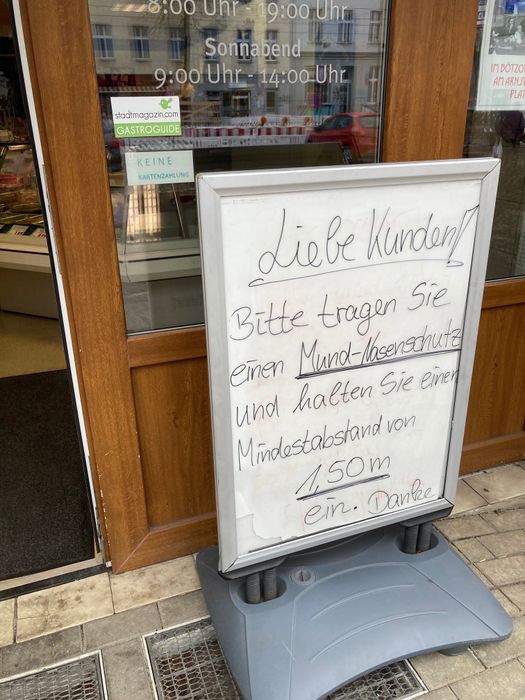 8:00 Uhr - 19:00 Uhr
Sonnabend
9:00 Uhr - 14:00 Uhr
stadtmagazin.com
GASTROGUIDE
KEINE
KARTENZAHLUNG
Liebe Kunden!
Bitte tragen Sie
einen Mund-Nasenschutz
und halten Sie einen
Mindestabstand von
1,50m
ein. Danke
IM BÖTZO
AM ARNS
PLAT